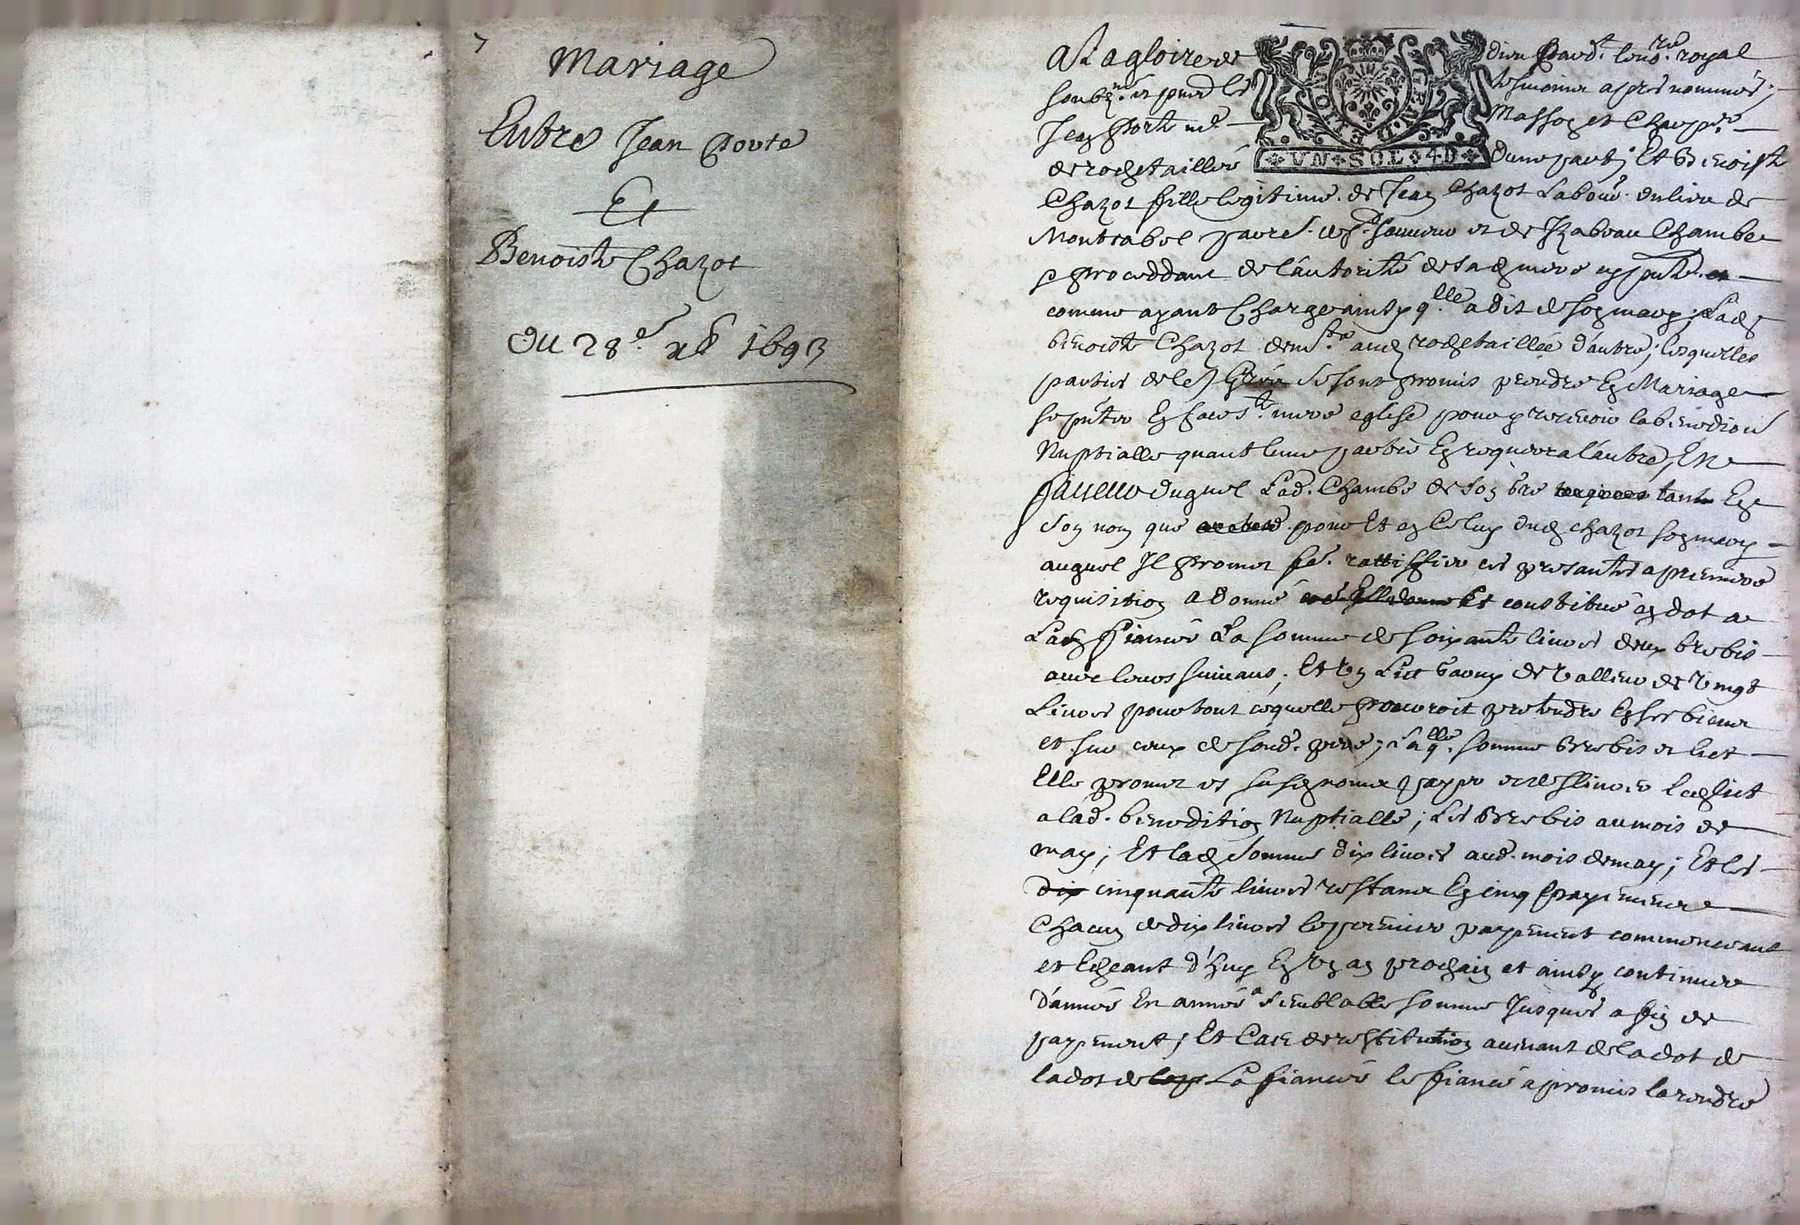 Mariage
Entre Jean Porte
Et
Benoiste Chazot
Du 28e xb 1693
a La gloire de dieu Pard.t no.re royal
soubz.né et pnd les tesmoins apres nommés ;
Jean Porte me Masson et Charp.re
de rochetaillée d'une part ; Et Benoiste
Chazot fille legitime de Jean Chazot Labour. du lieu de
et de Izabeau Chambe
proceddant de l'autorité de sad mere
comme ayant Charge ainsy q.lle a dit de son mary ; Lad
benoiste Chazot aud rochetaillée d'autre ; lesquelles
parties de se sont promis prendre En Mariage
se mere eglise pour y recevoir la benediction
Nuptialle quant l'une partie En requerra l'autre, En
faveur duquel Lad. Chambe de son gré tant En
son nom que pour Et en Celuy dud chazot son mary
auquel Il promet fe. rattiffier ces presantes a premiere
requisition a donné Et constitué en dot a
Lad fiancée La somme de soixante livres deux brebis
avec leurs suivans ; Et Un Lict de valleur de vingt
Livres pour tout ce quelle pourroit pretendre En ses biens
et sur ceux de sond. pere ; Laq.lle somme Brebis et lict
Elle promet payer Led lict
a lad. benedition Nuptialle ; Les Brebis au mois de
may ; Et lad somme dix livres aud. mois de may ; Et les
dix cinquante livres restans En cinq payemens
Chacun de dix livres le premier payement commencant
et Echeant d'huy En Un an prochain et ainsy continuer
D'année En année a semblable somme Jusques a fin de
payement ; Et Cas de restitution advenant de la dot de
la dot de La fiancée le fiancé a promis la rendre
UN SOL 4D